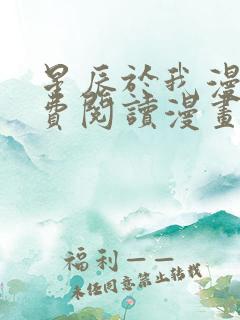 星辰於我漫
費閱讀漫畫
福利——
未经同意禁止转载